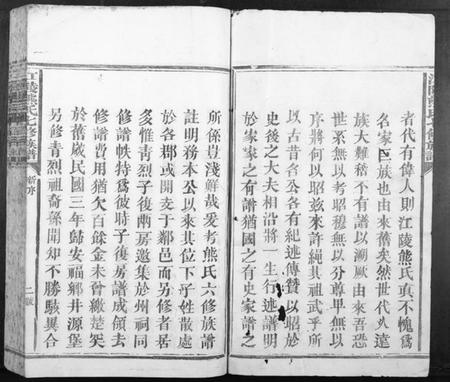 者代有偉人則江陵熊氏真不愧爲
名家巨族也由來舊矣然世代久遠
族大難稽不有譜以溯厥由來吾恐
世系無以考昭穆無以分尊卑無以
序將何以昭茲來許繩其祖武乎所
以古昔各公各有紀述傳贊以昭於
史後之大夫相沿將一生行述譜明
於家家之有譜猶國之有史家譜之
江陵熊氏七修族譜
新序
二
所係豈淺鮮哉爰考熊氏六修族譜
註明務本公以來其位下子姓散處
於各郡或開支于鄰邑而另修者居
多惟靑烈子後兩房邀集於州祠同
修譜帙持爲彼時子後房譜成領去
修譜費用猶欠百餘金未曾繳楚矣
於舊歲民國三年歸安福鄉井源堡
另修青烈祖裔孫聞知不勝駭異合